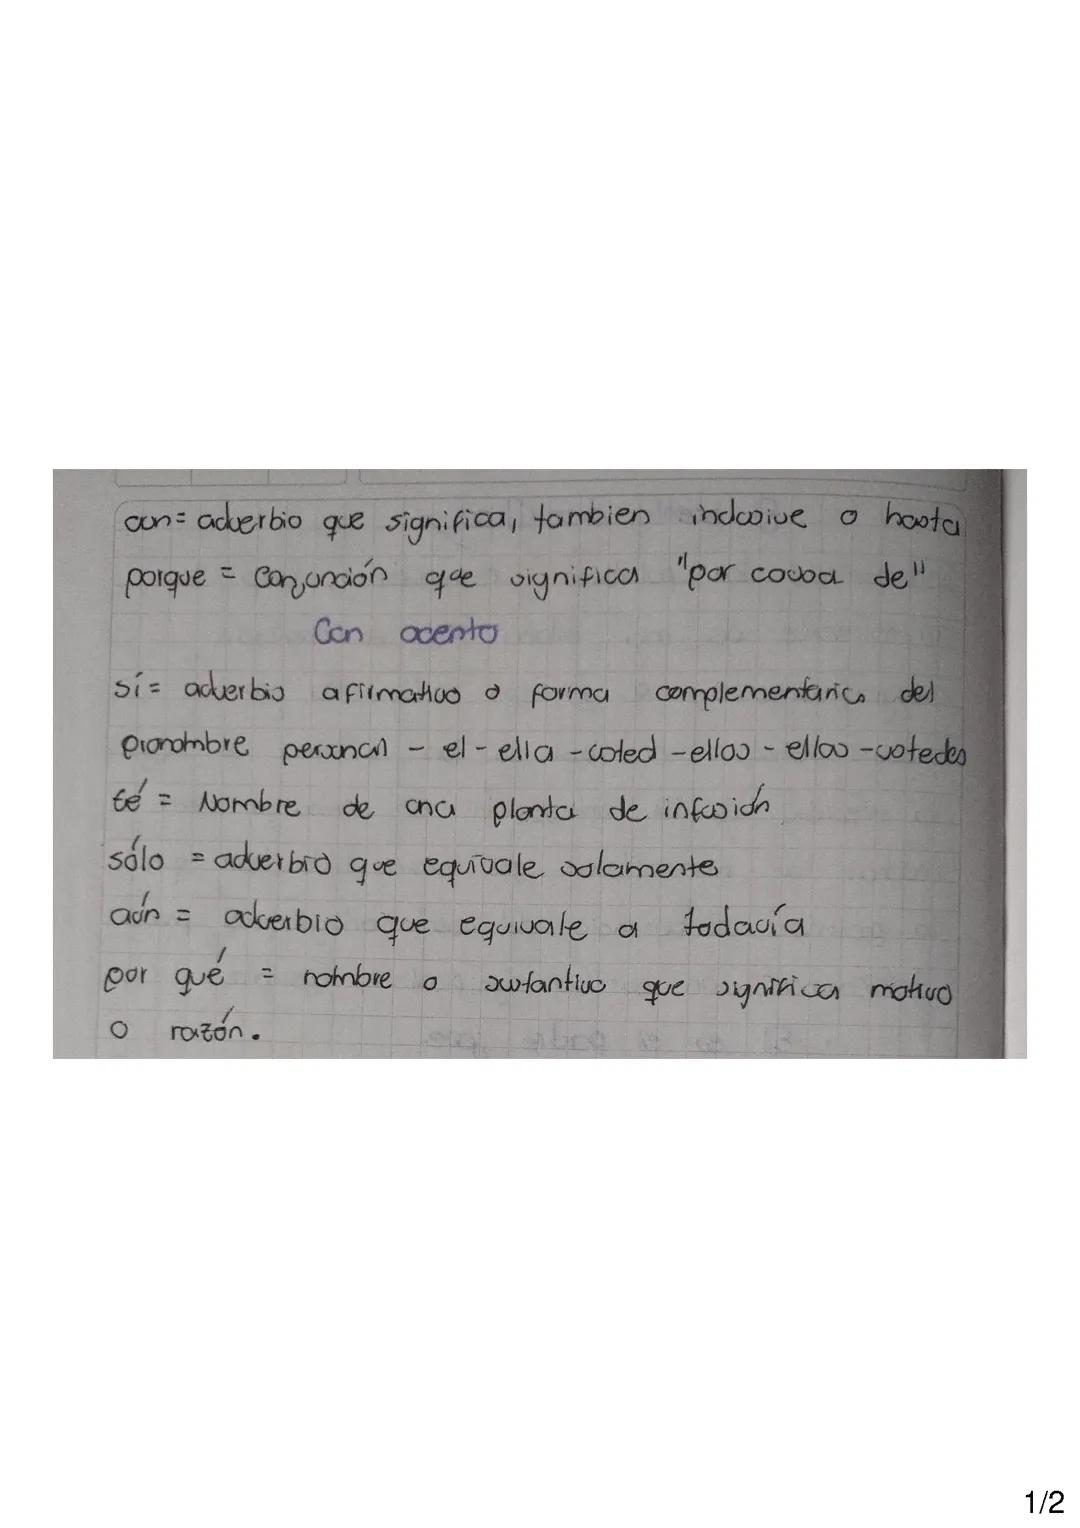 aun= adverbio que significa, tambien inclusive o hasta
porque = Conjunción que significa "por causa de"
Con acento
sí = adverbio afirmativo o forma complementaria del
pronombre personal - el - ella - usted - ellos - ellas - ustedes
té = Nombre de una planta de infusión
sólo = adverbio que equivale solamente
aún = adverbio que equivale a todavía
por qué = nombre o sustantivo que significa motivo
o razón.
1/2